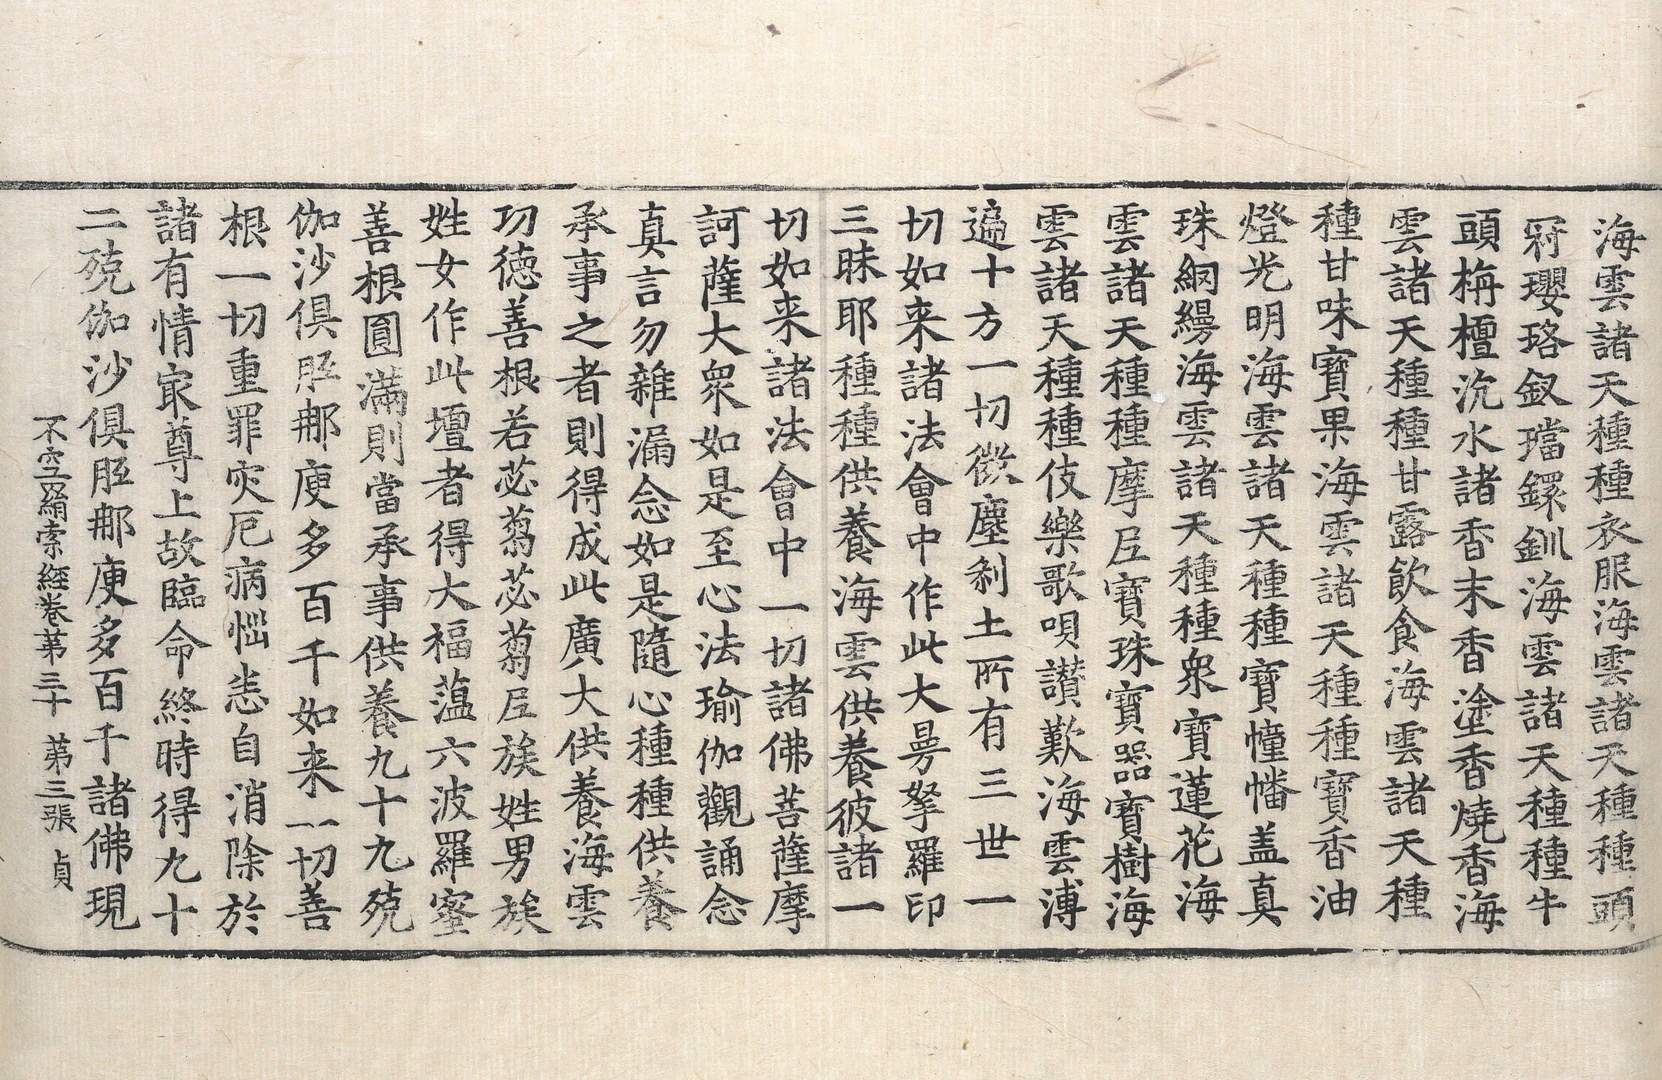 海雲諸天種種衣服海雲諸天種種頭
冠瓔珞釵璫鐶釧海雲諸天種種牛
頭栴檀沉水諸香末香塗香燒香海
雲諸天種種甘露飲食海雲諸天種
種甘味寶果海雲諸天種種寶香油
燈光明海雲諸天種種寶幢幡盖真
珠網縵海雲諸天種種衆寶蓮花海
雲諸天種種摩尼寶珠寶器寶樹海
雲諸天種種伎樂歌唄讃歎海雲溥
遍十方一切微塵刹土所有三世一
切如来諸法會中作此大曼拏羅印
三昧耶種種供養海雲供養彼諸一
切如来諸法會中一切諸佛菩薩摩
訶薩大衆如是至心法瑜伽觀誦念
真言勿雜漏念如是隨心種種供養
承事之者則得成此廣大供養海雲
功德善根若苾蒭苾蒭尼族姓男族
姓女作此壇者得大福蕰六波羅蜜
善根圓滿則當承事供養九十九殑
伽沙俱胝那庾多百千如来一切善
根一切重罪灾厄病惱恚自消除於
諸有情㝡尊上故臨命終時得九十
二殑伽沙俱胝那庾多百千諸佛現
不空羂索經卷苐三十　苐三張　貞